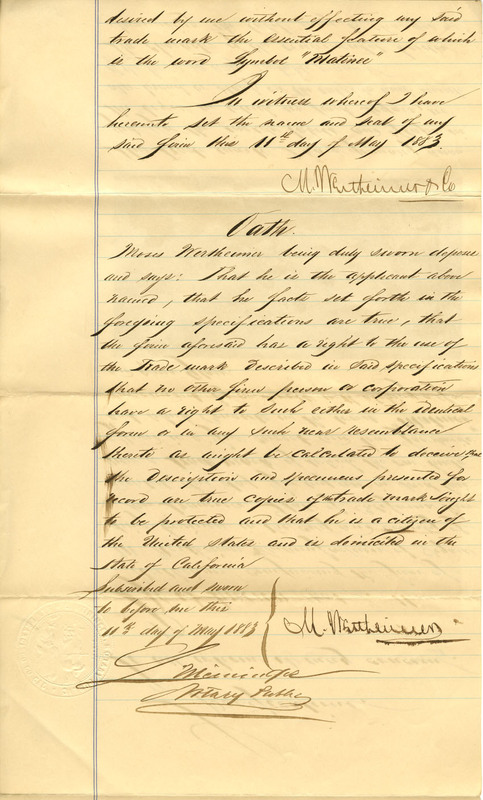 desired by me without effecting my said
trade mark the essential feature of which
is the word Symbol "Matinee"
In witness whereof I have
hereunto set the name and seal of my
said firm this 11th day of May 1883.
M. Wertheimer & Co
Oath.
Moses Wertheimer being duly sworn deposes
and says: That he is the applicant above
named, that he facts set forth in the
foregoing specifications are true, that
the firm aforesaid has a right to the use of
the Trade mark Described in said specifications
that no other firm person or corporation
have a right to such either in the identical
form or in any such near resemblance
thereto as might be calculated to deceive that
the Description and specimens presented for
record are true copies of the trade mark sought
to be protected and that he is a citizen of
the United States and is domiciled in the
State of California
Subscribed and sworn
to before me this
11th day of May 1883
M. Wertheimer
Notary Public